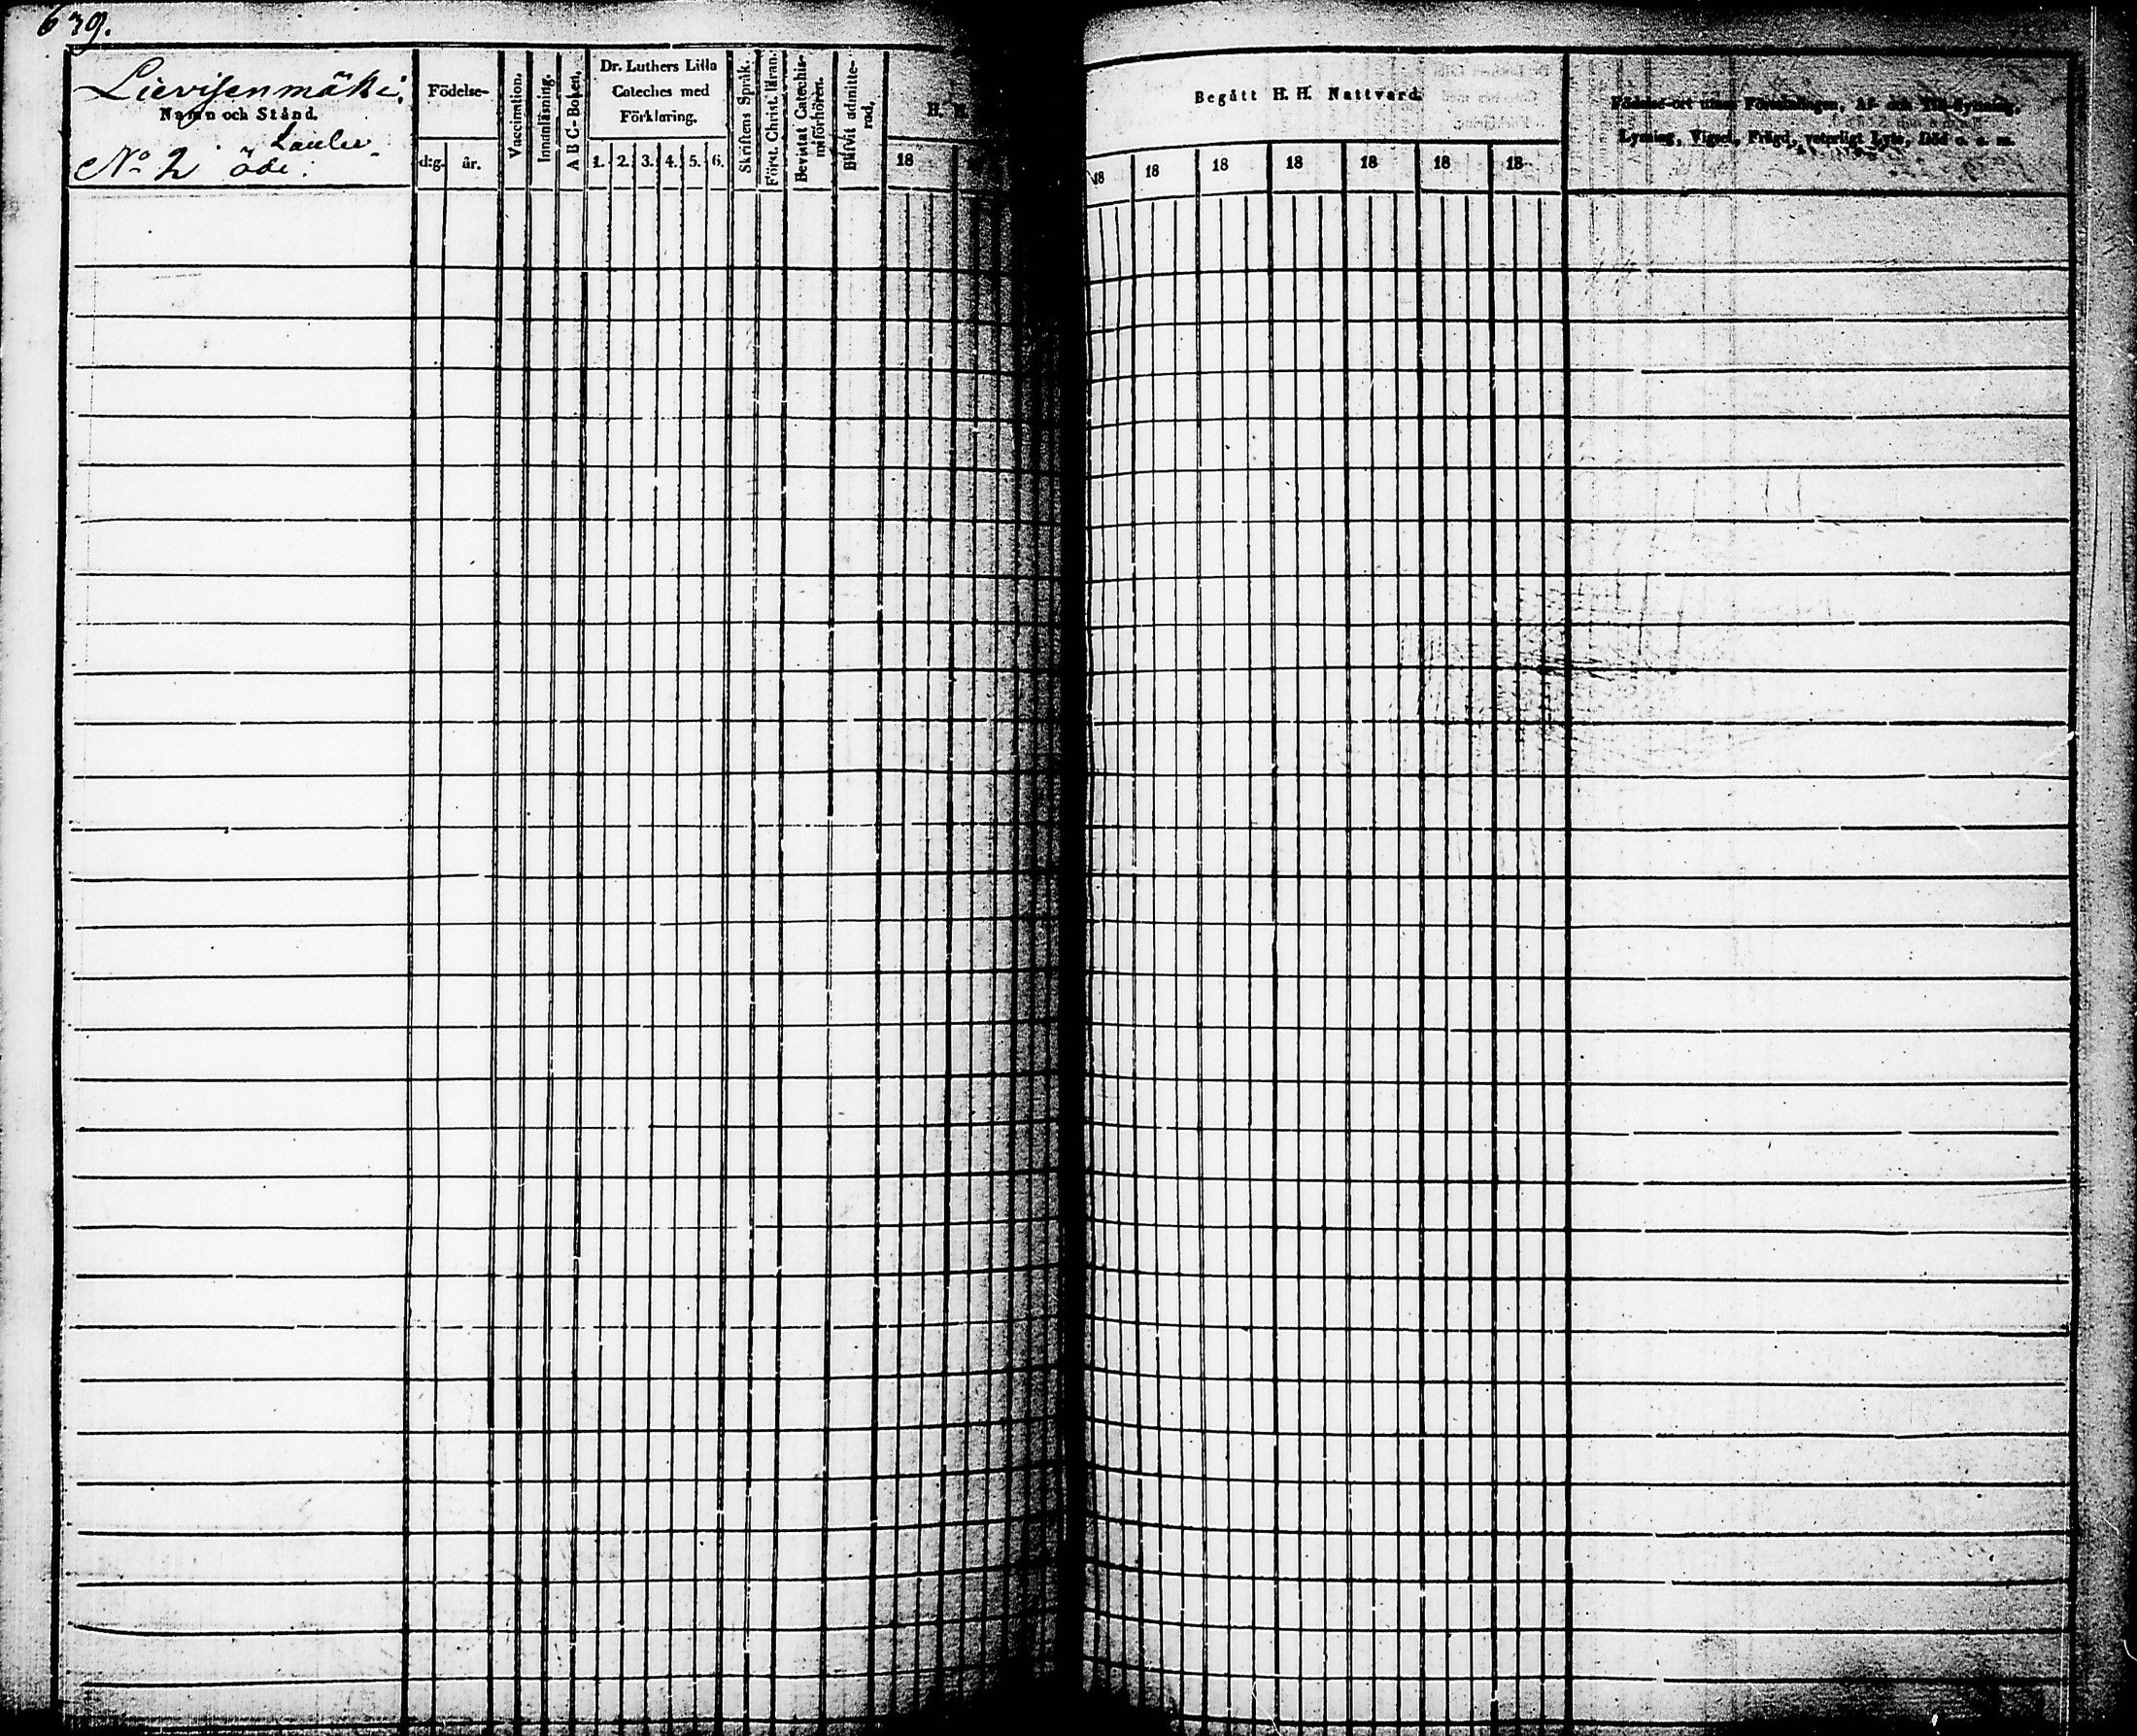 639.
Lievisenmäki.
Namn och Stånd.
Laulu
No 2 öde.
Födelse-
d:g.
år.
Vaccination.
Innanläsning.
A B C-Boken,
Dr. Luthers Lilla
Cateches med
Förklaring.
1. 2. 3. 4. 5. 6.
Skriftens Språk.
Först. Christ. läran.
Bevistat Catechis-
miförhören.
Blifvit admitte-
rad,
H.
18
Begått H. H. Nattvard.
18 18 18 18 18 18 18
Födelse-ort utom Församlingen, Af- och Till-flyttning,
Lysning, Vigsel, Frägd, veterligt Lyte, Död o. s. m.